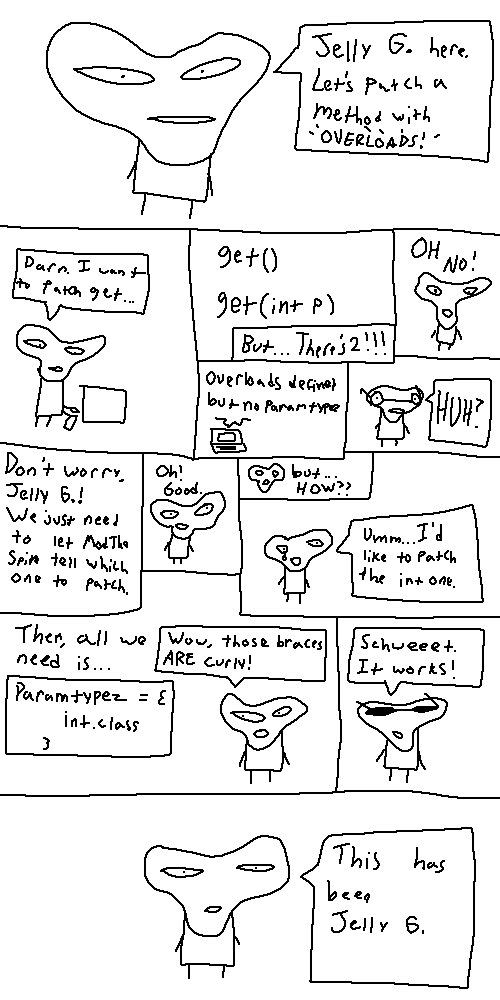 Jelly G. here.
Let's patch a
method with
OVERLOADS!
Darn. I want
to patch get...
get()
get(int p)
But... There's 2!!!
OH
NO!
Overloads defined
but no Paramtypez
HUH?
Don't worry,
Jelly G.!
We just need
to let ModThe
Spire tell which
one to patch.
Oh!
Good.
but...
HOW??
Umm...I'd
like to patch
the int one.
Then, all we
need is...
Paramtypez = {
int.class
}
Wow, those braces
ARE curly!
Schweeet.
It works!
This has
been
Jelly G.